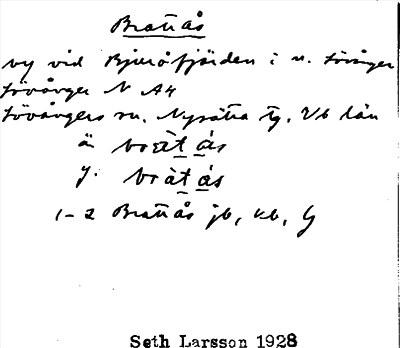 Brattås
vy vid Bjuröfjärden i n. Lövånger
Lövånger N A4
Lövångers sn. Nysätra tg. Vb län
ä. bràt ás
y. bràt ás
1-2 Brattås jb, kb, G
Seth Larsson 1928